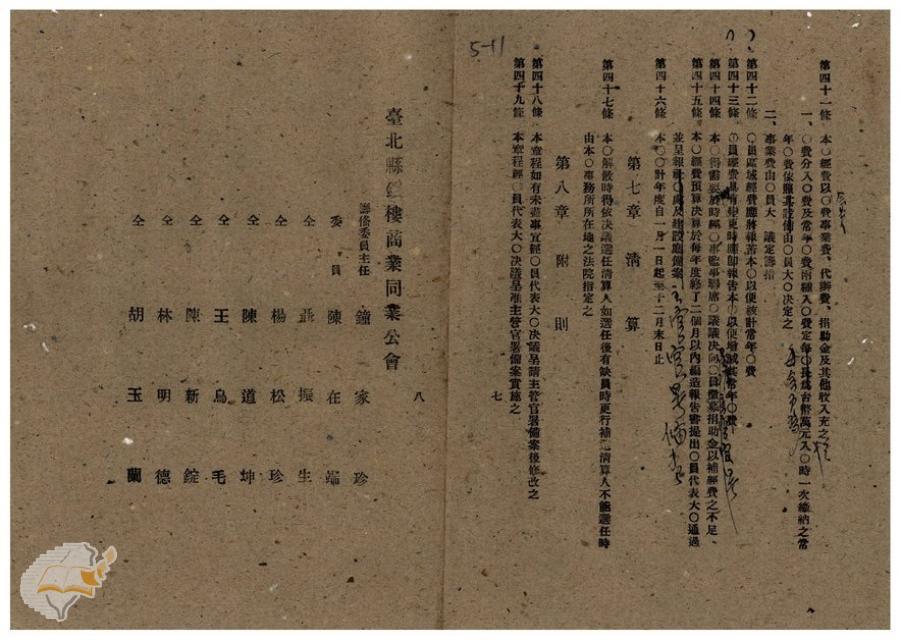 5-11
第四十一條　本○經費以○費事業費、代辦費、捐助金及其他收入充之
一、○費分入○費及常年○費兩種入○費定每○員為台幣萬元入○時一次繳納之常
年○費依照其設備由○員大○決定之
二、事業費由○員大　議定籌措
第四十二條　○員區域經費應將報告本○以便核計常年○費
第四十三條　○員經費具有變更時應即報告本○以便增減其常年○費
第四十四條　本○得需要於時經○事監事聯席○議議決向○員徵募捐助金以補經費之不足、
第四十五條　本○經費預算決算於每年度終了二個月以內編造報告書提出○員代表大○通過
並呈報社○處及建設廳備案
第四十六條　本○○計年度自一月一日起至十二月末日止
第七章　清算
第四十七條　本○解散時得依決議選任清算人如選任後有缺員時更行補選清算人不能選任時
由本○事務所所在地之法院指定之
第八章　附則
第四十八條　本章程如有未盡事宜經○員代表大○決議呈請主管官署備案後修改之
第四十九條　本章程經○員代表大○決議呈准主管官署備案實施之
七
臺北縣樓商業同業公會
籌備委員主任　鐘家珍
委員　陳在端
仝　振生
仝　楊松珍
仝　陳道坤
仝　王烏毛
仝　陳新錠
仝　林明德
仝　胡玉蘭
八